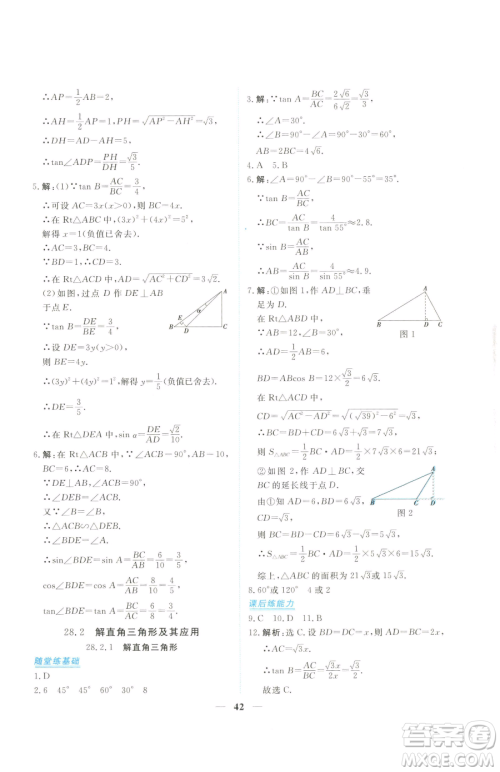 ∴AP=1/2AB=2,
∴AH=1/2AP=1,PH=√(AP²−AH²)=√3.
∴DH=AD−AH=5.
∴tan∠ADP=PH/DH=√3/5.
5.解:(1)∵tan B=AC/BC=3/4,
∴可设AC=3x(x>0),则BC=4x.
∵在Rt△ABC中,(3x)²+(4x)²=5²,
解得x=1(负值已舍去).
∴AC=3.
∴在Rt△ACD中,AD=√(AC²+CD²)=3√2.
(2)如图,过点D作DE⊥AB
于点E.
∵tan B=DE/BE=3/4,
∴设DE=3y(y>0),
则BE=4y.
∴(3y)²+(4y)²=1,解得y=1/5(负值已舍去).
∴DE=3/5.
∴在Rt△DEA中,sin α=DE/AD=√2/10.
6.解:∵在Rt△ACB中,∠C=90°,AB=10,
BC=6,∴AC=8.
∵DE⊥AB,
∴∠DEB=90°=∠C.
又∵∠B=∠B,
∴△BDE∽△BAC.
∴∠BDE=∠A.
∴sin∠BDE=sin A=BC/AB=6/10=3/5,
cos∠BDE=cos A=AC/AB=8/10=4/5.
28.2 解直角三角形及其应用
28.2.1 解直角三角形
随堂练基础
1.D
2.6 45° 45° 60° 30° 8
3.解:∵tan A=BC/AC=2√6/6√2=√3/3,
∴∠A=30°.
∴∠B=90°−∠A=90°−30°=60°.
4.A 5.B
6.解:∠A=90°−∠B=90°−55°=35°.
∵tan B=AC/BC,
∴BC=AC/tan B=4/tan 55°≈2.8.
∵sin B=AC/AB,
∴AB=AC/sin B=4/sin 55°≈4.9.
7.解:①如图1,作AD⊥BC,垂
足为点D.
在Rt△ABD中,
∵AB=12,∠B=30°,
∴AD=1/2AB=6,
BD=ABcos B=12×√3/2=6√3.
在Rt△ACD中,
CD=√(AC²−AD²)=√((√39)²−6²)=√3,
∴BC=BD+CD=6√3+√3=7√3.
∴S△ABC=1/2×BC×AD=1/2×7√3×6=21√3;
②如图2,作AD⊥BC,交BC
的延长线于点D.
由①知,AD=6,BD=6√3,
CD=√3,
则BC=BD−CD=5√3.
∴S△ABC=1/2×BC×AD=1/2×5√3×6=15√3.
综上,△ABC的面积是21√3或15√3.
8.60°或120° 4√3
课后练能力
9.C 10.D 11.B
12.解析:选C.设BD=DC=AC=x.
∴AD=√2x.
∴tan B=AC/BC=x/2x=1/2.
故选C.
A
E
α
B
D
C
A
B
D
C
图1
A
B
C
D
图2
42